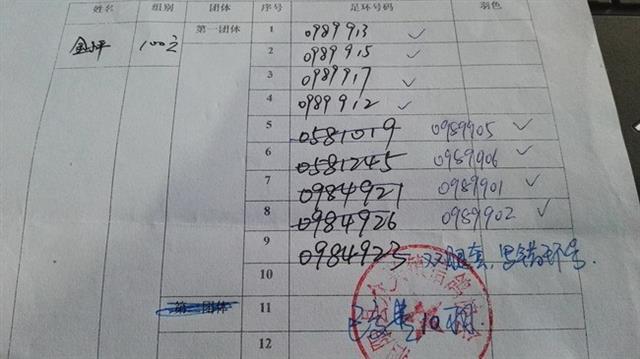 姓名 组别 团体 序号 足环号码 羽色
第一团体 1 0989913 ✓
100 2 0989915 ✓
3 0989917 ✓
4 0989912 ✓
5 0581019 0989905 ✓
6 0581245 0989906 ✓
7 0984921 0989901 ✓
8 0984926 0989902 ✓
9 0984923 双 套, 写错环号.
10
团体 11 10
12